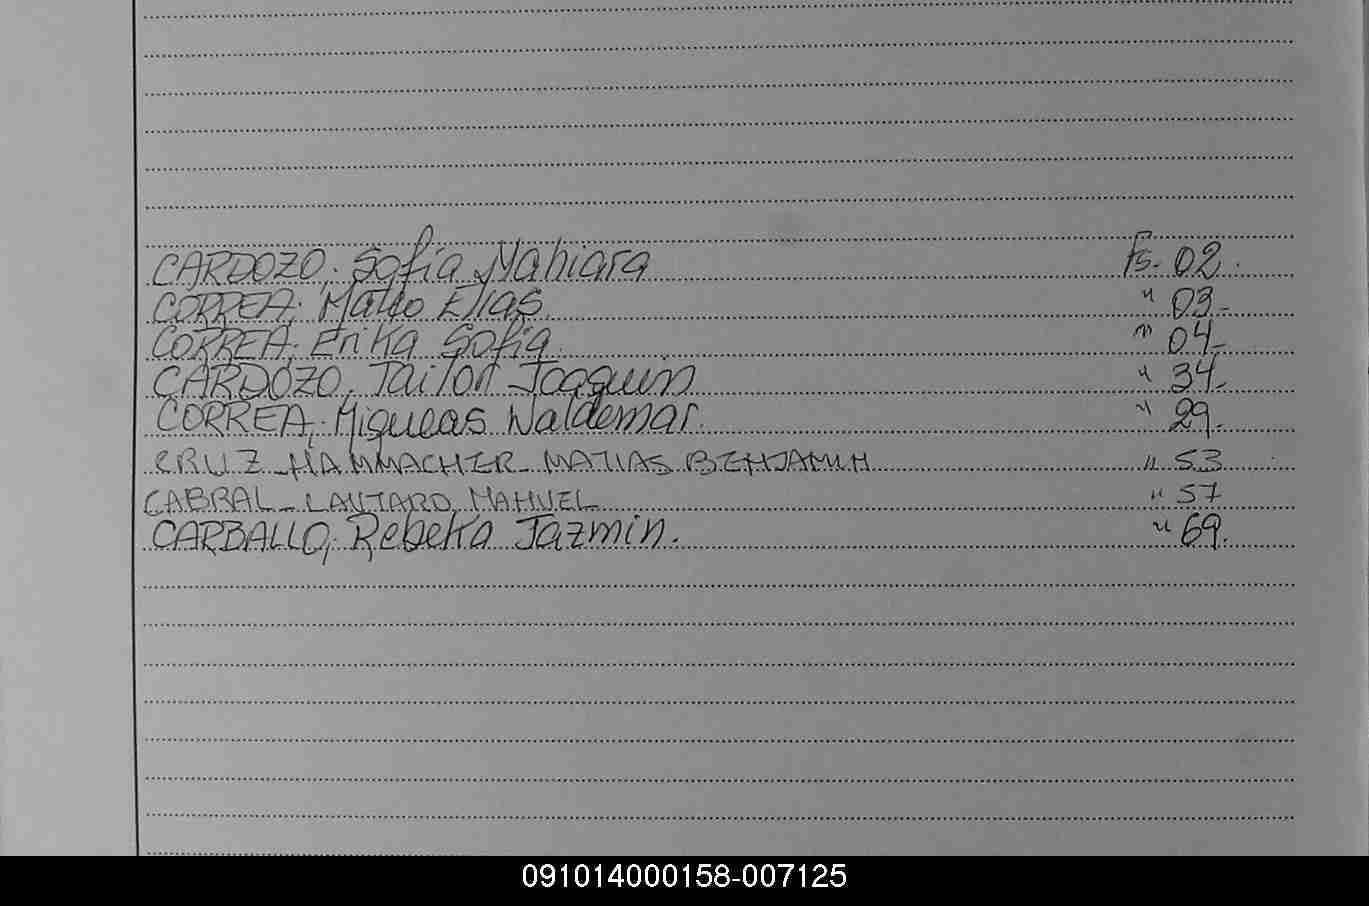 CARDOZO; Sofía Nahiara Fs. 02.
CORREA; Mateo Elías. " 03.-
CORREA; Erika Sofía. " 04.-
CARDOZO, Tailon Joaquin " 34.-
CORREA; Miqueas Waldemar. " 29.-
CRUZ - HAMMACHER - MATIAS BENJAMIN " 53
CABRAL - LAUTARO NAHUEL " 57
CARBALLO; Rebeka Jazmin. " 69.
091014000158-007125